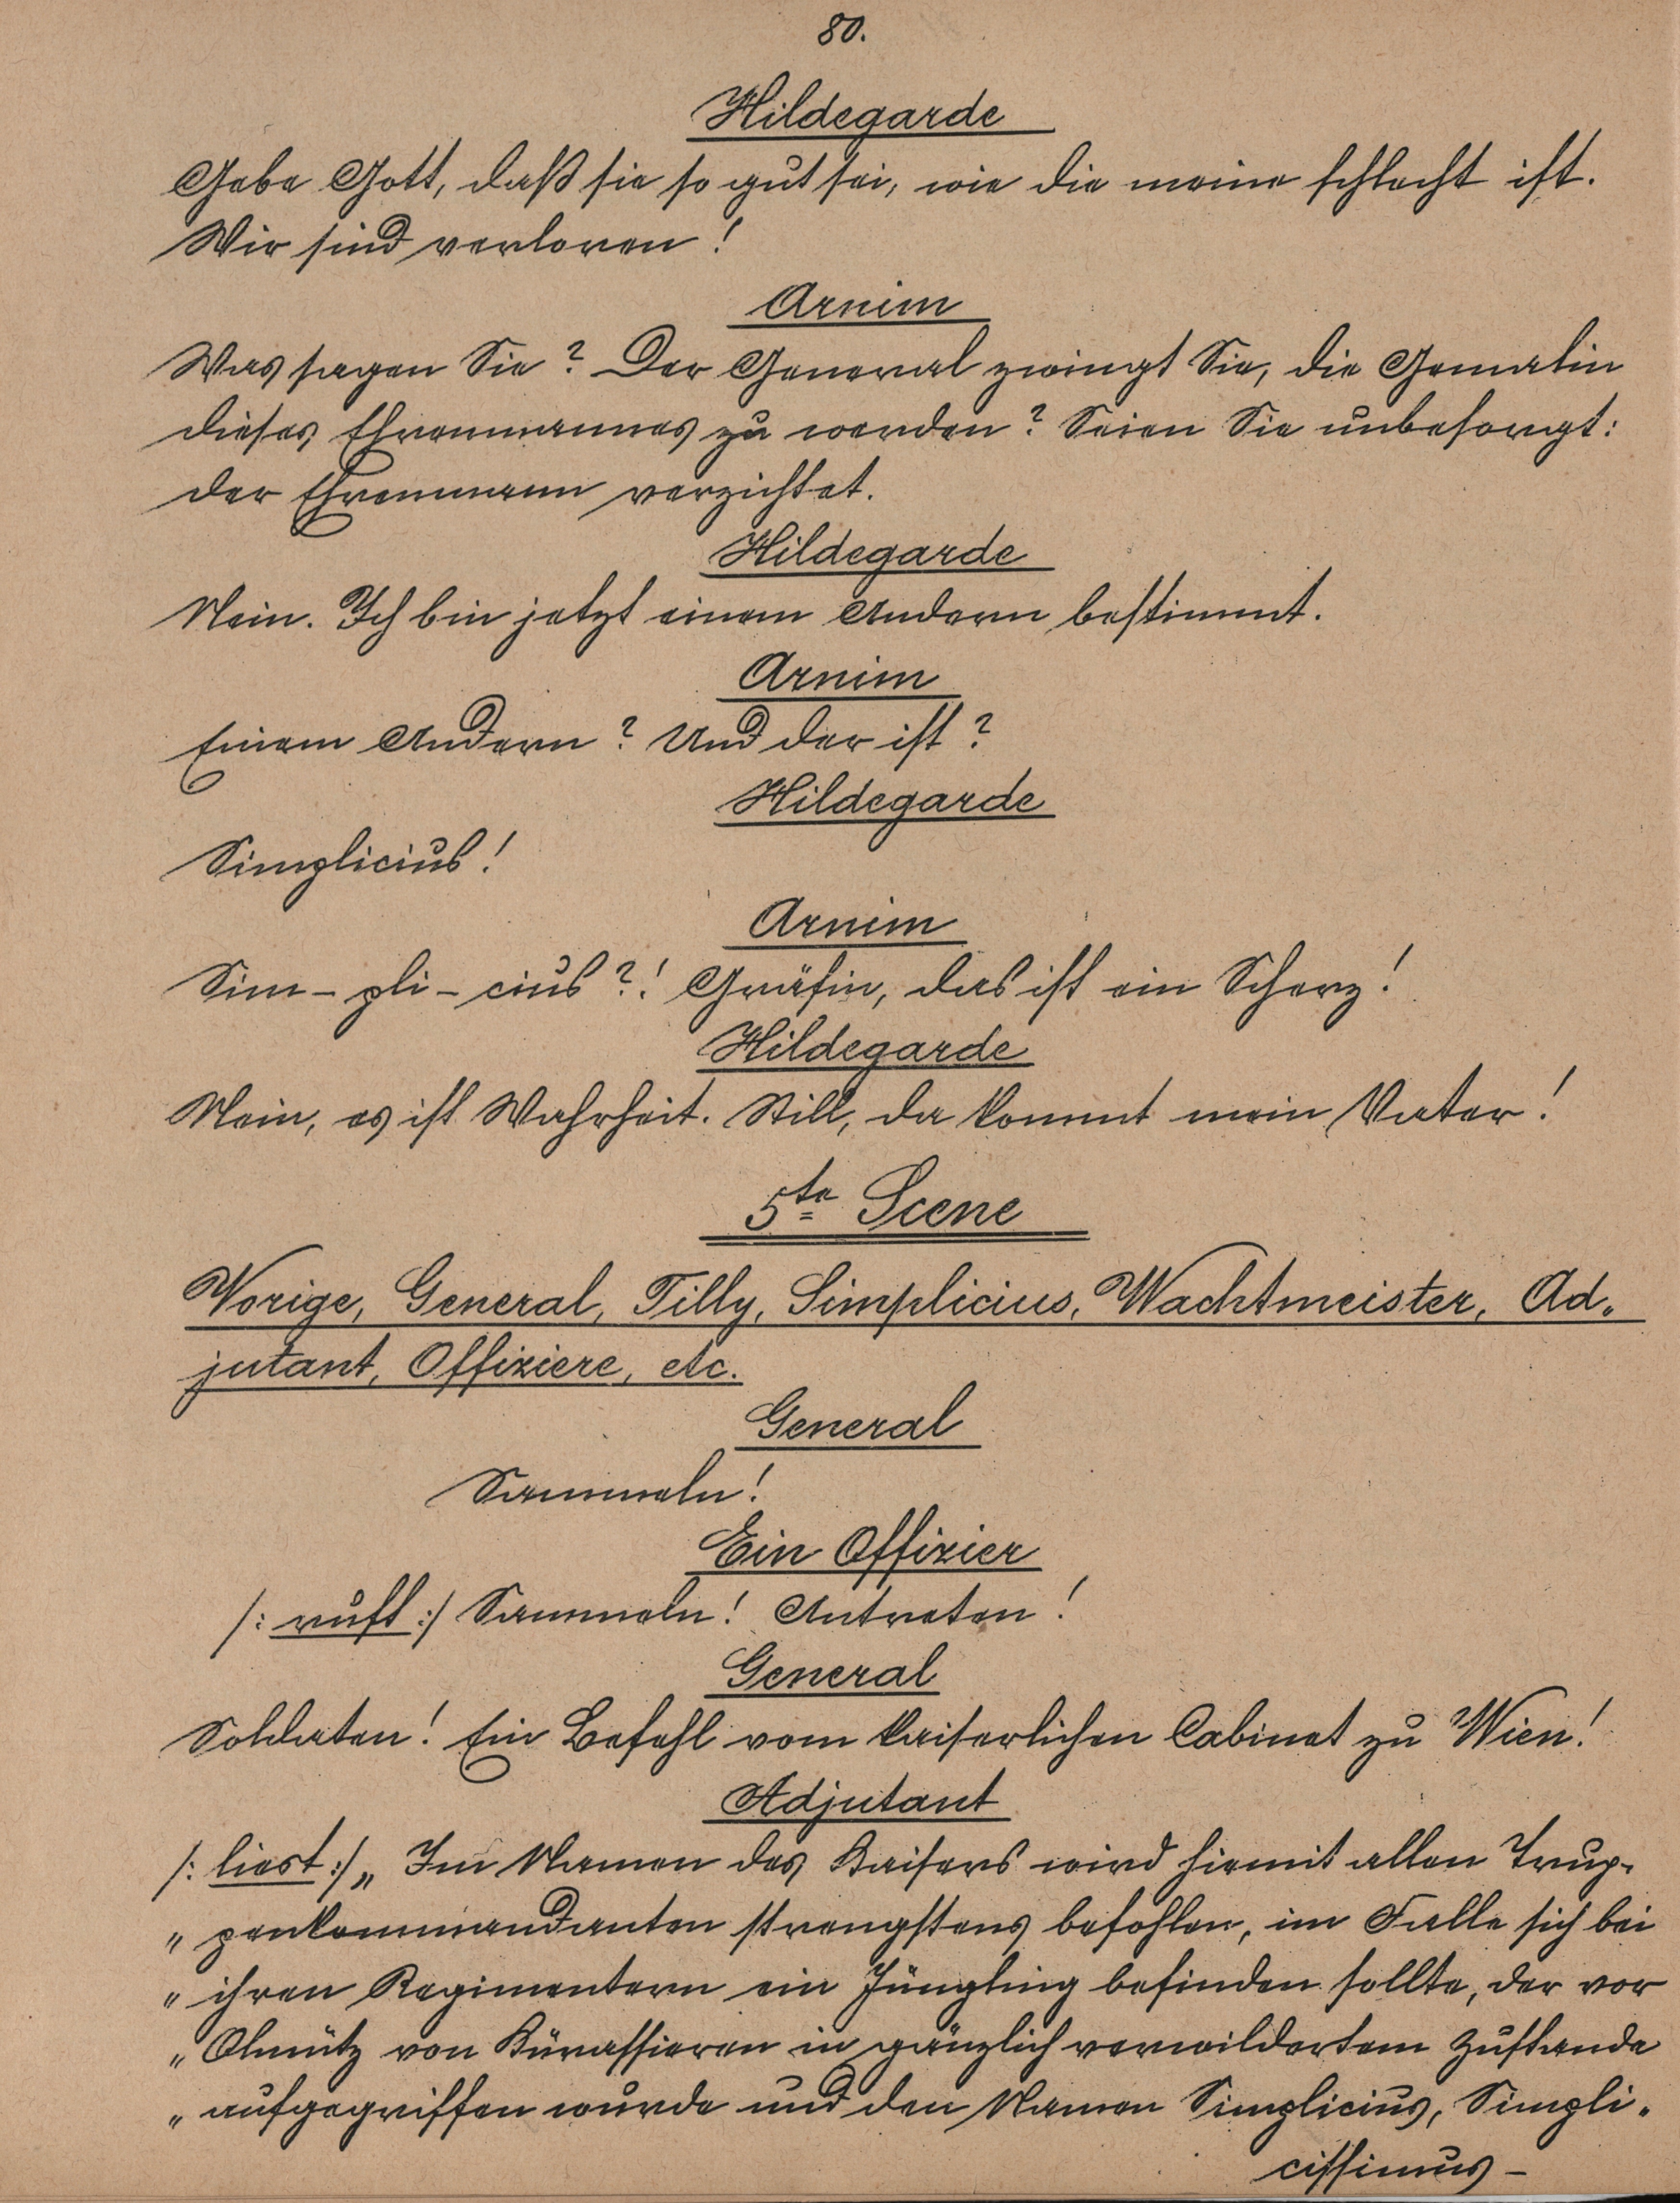 80.
Hildegarde
Gebe Gott, daß sie so gut sei, wie die meine schlecht ist.
Wir sind verloren!
Arnim
Was sagen Sie? Der General zwingt Sie, die Gemalin
dieses Ehrenmannes zu werden? Seien Sie unbesorgt:
der Ehrenmann verzichtet.
Hildegarde
Nein. Ich bin jetzt einem Andern bestimmt.
Arnim
Einem Andern? Und der ist?
Hildegarde
Simplicius!
Arnim
Sim-pli-cius?! Gräfin, das ist ein Scherz!
Hildegarde
Nein, es ist Wahrheit. Still, da kommt mein Vater!
5te Scene
Vorige, General, Tilly, Simplicius, Wachtmeister, Ad-
jutant, Offiziere, etc.
General
Sammeln!
Ein Offizier
/: ruft :/ Sammeln! Antreten!
General
Soldaten! Ein Befehl vom kaiserlichen Cabinet zu Wien!
Adjutant
/: liest :/ „Im Namen des Kaisers wird hiemit allen Trup-
„penkommandanten strengstens befohlen, im Falle sich bei
„ihren Regimentern ein Jüngling befinden sollte, der vor
„Olmütz von Kürassieren in gänzlich verwildertem Zustande
„aufgegriffen wurde und den Namen Simplicius, Simpli-
cissimus –